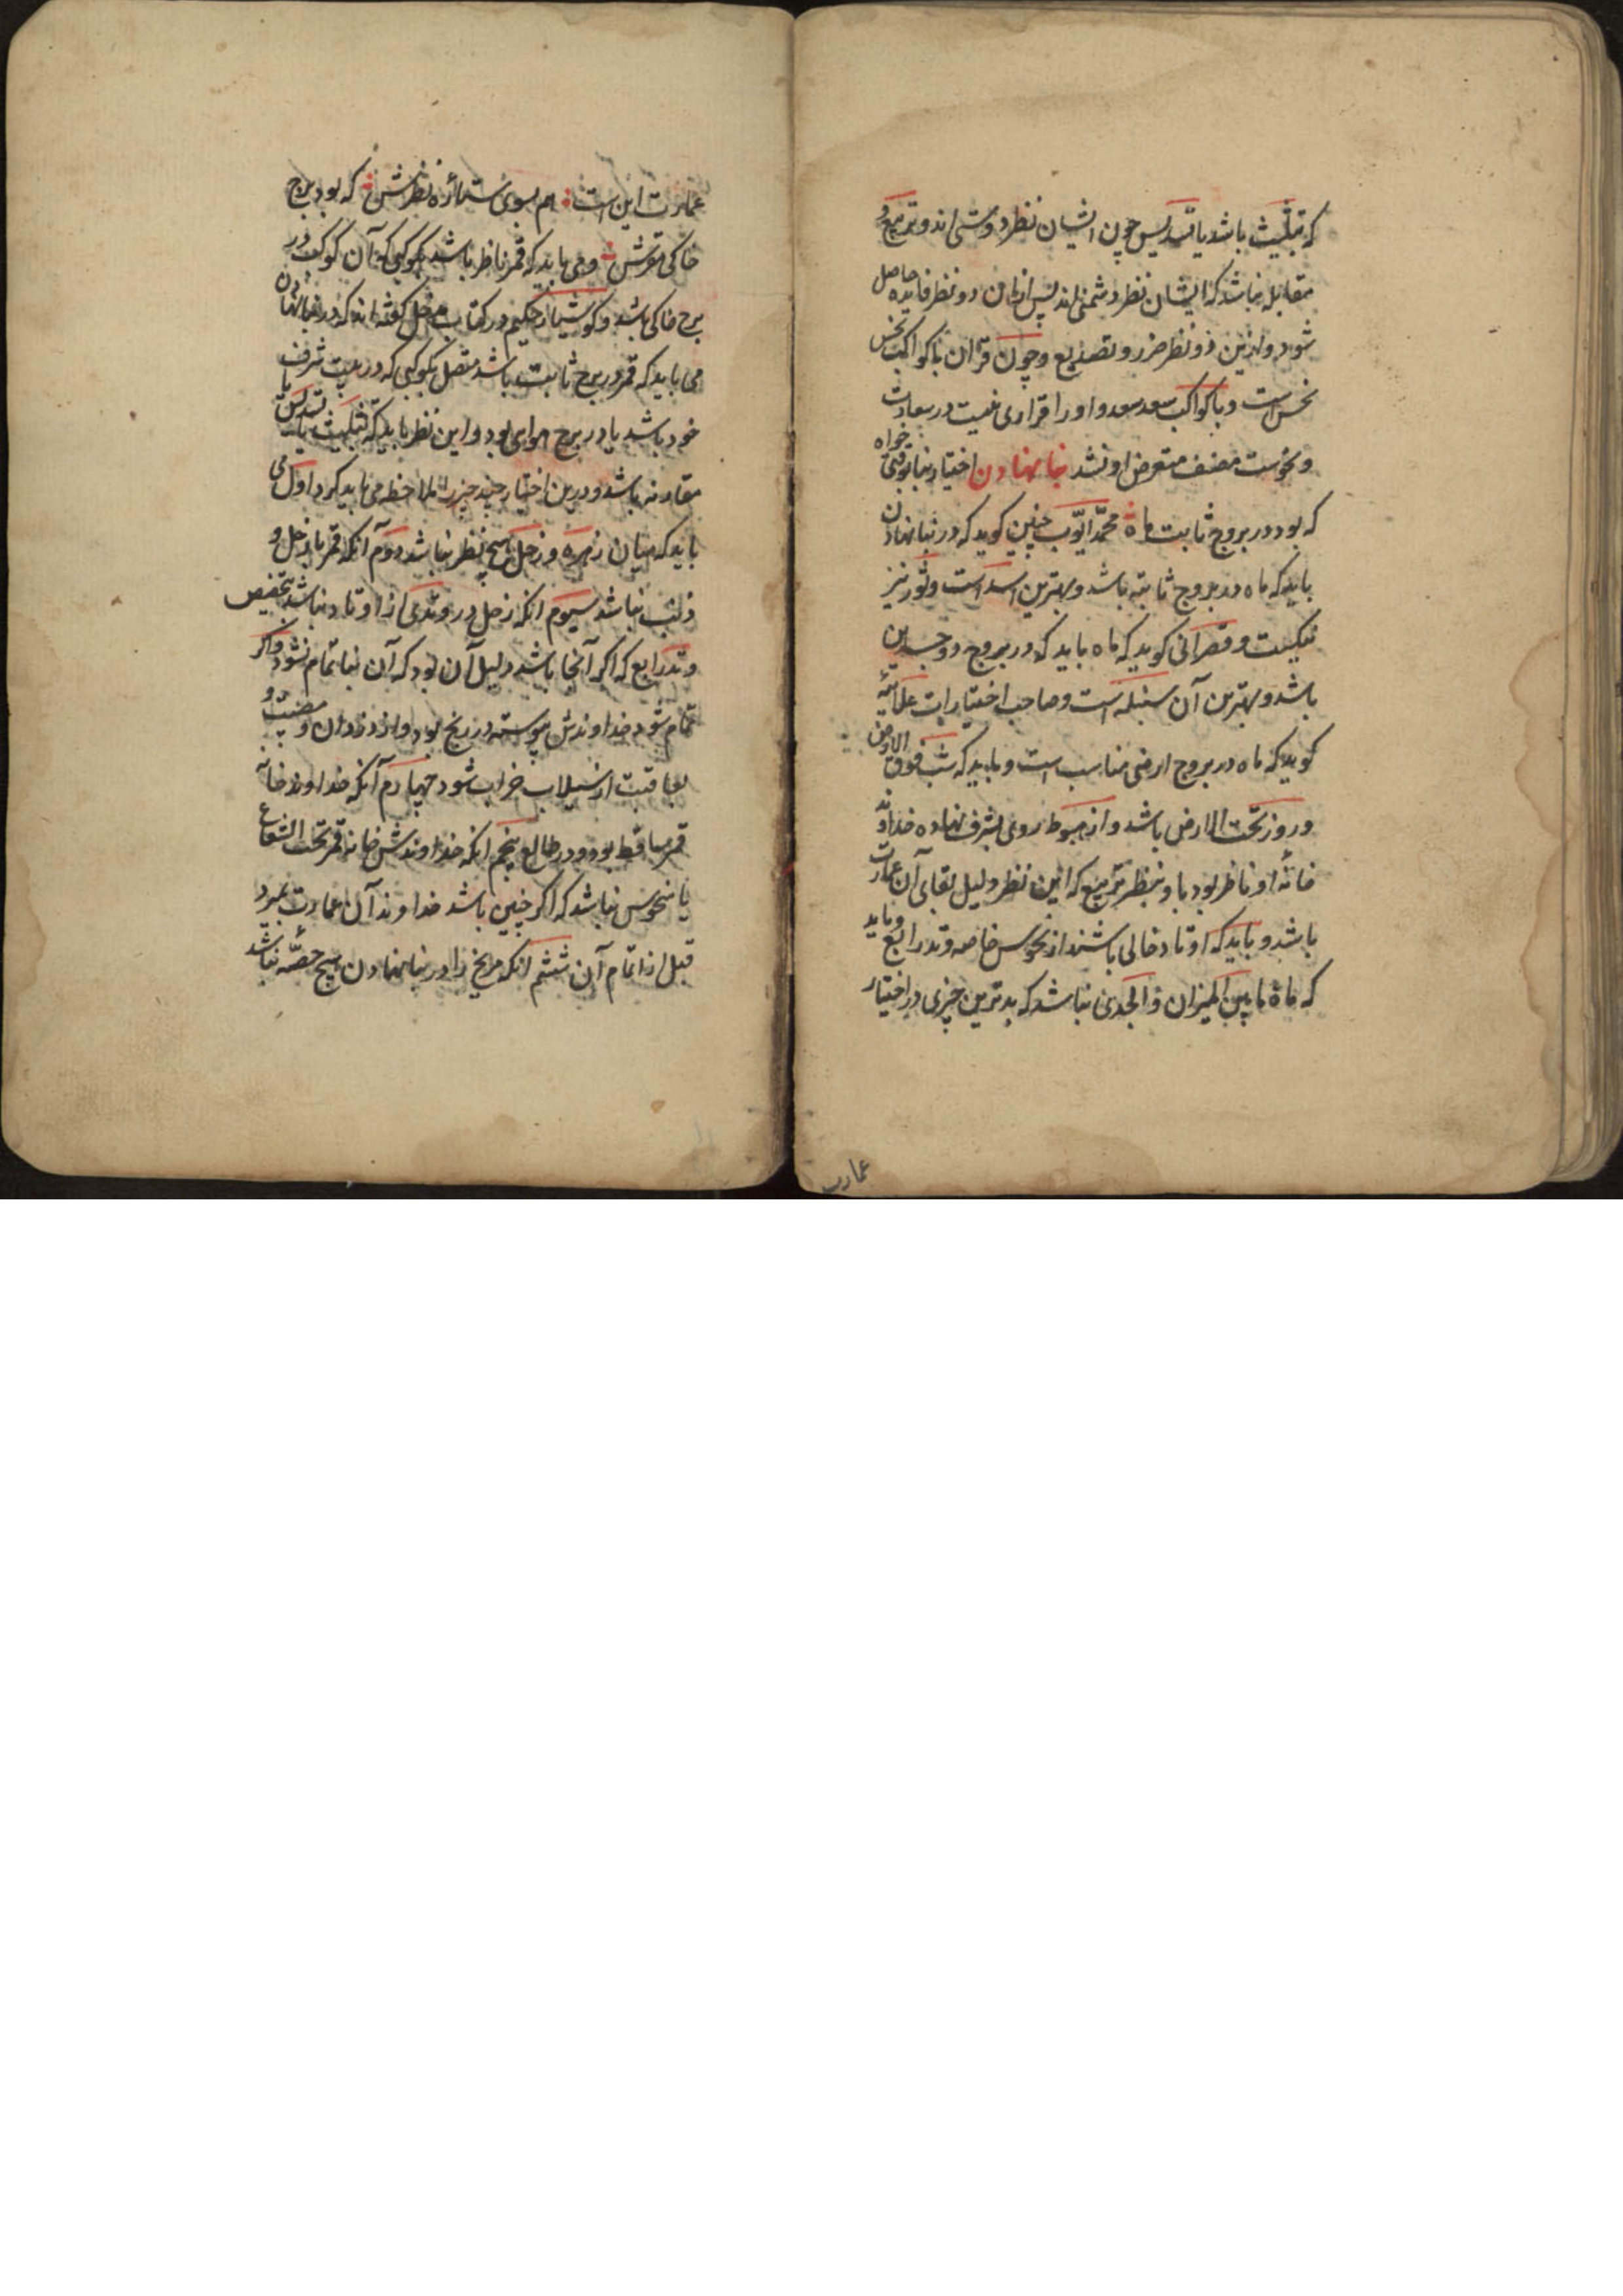 که تثلیث باشد یا تسدیس چون ایشان نظر دوستی اند و تربیع و
مقابله نباشد که ایشان نظر دشمنی اند پس ازان دو نظر فایده حاصل
شود و ازین دو نظر ضرر و تصدیع و چون قران با کواکب نحس
نحس است و با کواکب سعد سعد و او را قراری نیست در سعادت
و نحوست مصنف متعرض او نشد بنا نهادن اختیار بنا بوقتی خواه
که بود در بروج ثابت ماه محمد ایوب چنین کوید که در بنا نهادن
باید که ماه در بروج ثابته باشد و بهترین اسد است و ثور نیز
نیکست و قصرانی کوید که ماه باید که در بروج ذوجسدین
باشد و بهترین آن سنبله است و صاحب اختیارات علائیه
کوید که ماه در بروج ارضی مناسب است و باید که شب فوق الارض
و روز تحت الارض باشد و از هبوط روی بشرف نهاده خداوند
خانهٔ او ناظر بود باو بنظر تربیع که این نظر دلیل بقای آن عمارت
باشد و باید که اوتاد خالی باشند از نحوس خاصه وتد رابع و باید
که ماه مابین المیزان و الجدی نباشد که بدترین چیزی در اختیار
عمارت
عمارت این است هم بسوی ستارهٔ نظرش که بود برج
خاکی مقرش و می باید که قمر ناظر باشد بکوکبی که آن کوکب در
برج خاکی باشد و کوشیار حکیم در کتاب مدخل کفته اند که در بنا نهادن
می باید که قمر در برج ثابت باشد متصل بکوکبی که در بیت شرف
خود باشد یا در برج هوای بود و این نظر باید که تثلیث یا تسدیس یا
مقارنه باشد و درین اختیار چند چیز را ملاحظه می باید کرد اول می
باید که میان زهره و زحل هیچ نظر نباشد دوم آنکه قمر با زحل و
ذنب نباشد سیوم انکه زحل در وتدی از اوتاد نباشد بتخصیص
وتد رابع که اکر آنجا باشد دلیل آن بود که آن بنا تمام نشود و اکر
تمام شود خداوندش پیوسته در رنج بود و از دزدان و مصیبت و
بعاقبت از سیلاب خراب شود چهارم آنکه خداوند خانه
قمر ساقط بود و در طالع پنجم انکه خداوندش خانه قمر تحت الشعاع
یا منحوس نباشد که اکر چنین باشد خداوند آن عمارت بمیرد
قبل از اتمام آن ششم انکه مریخ را در بنا نهادن هیچ حصّه نباشد